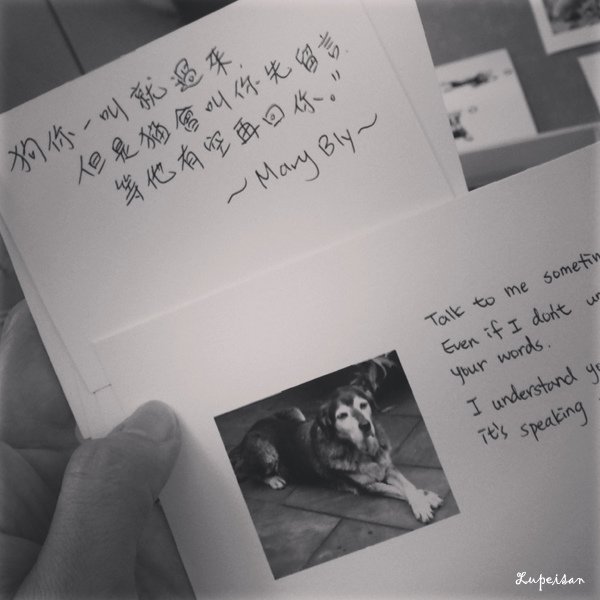 狗你一叫就過來,
但是貓會叫你先留言.
等他有空再回你。"
~Mary Bly~
Talk to me
Even if I don't
your words.
I understand
it's speaking
Lupeisan